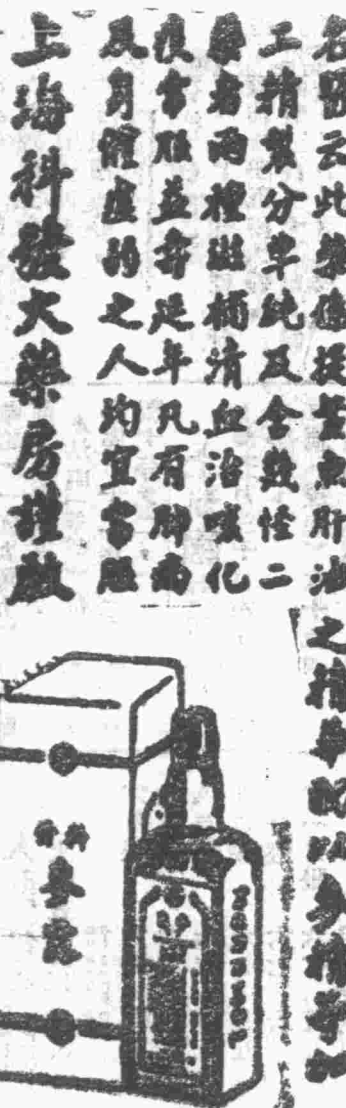 名醫云此藥係提鰵魚肝油之精華配以參精等加
工精製分單純及含幾怪二
藥者兩種滋補清血治咳化
痰常服益壽延年凡有肺病
及身體虛弱之人均宜常服
上海科發大藥房謹啟
參露